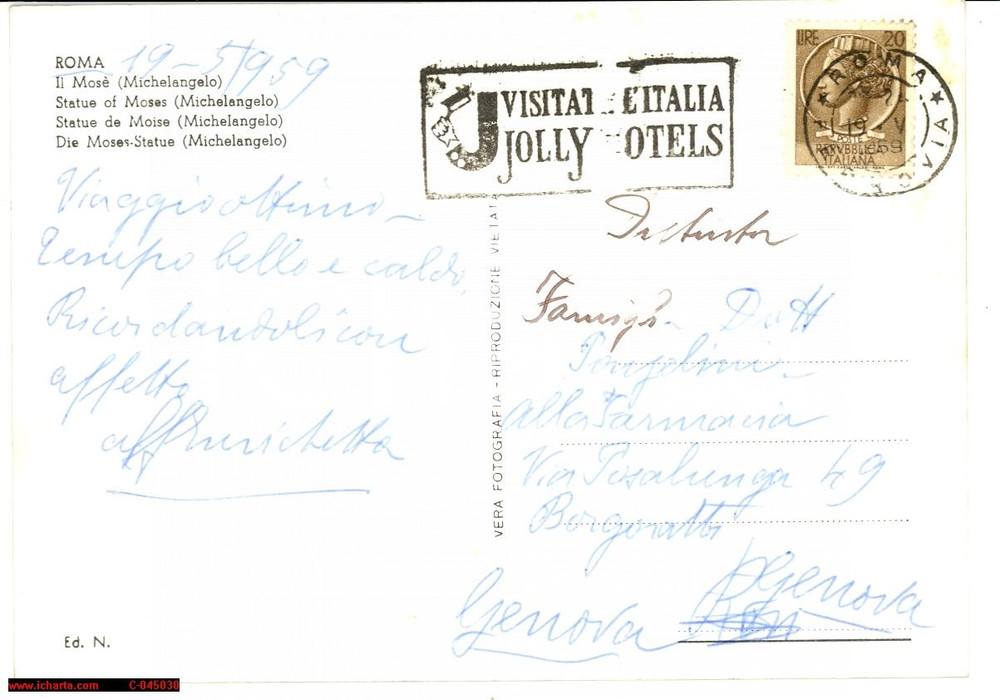 ROMA
19-5-1959
Il Mosè (Michelangelo)
Statue of Moses (Michelangelo)
Statue de Moise (Michelangelo)
Die Moses-Statue (Michelangelo)
Viaggio ottimo -
Tempo bello e caldo,
Ricordandoli con
affetto
aff Enrichetta
Ed. N.
VISITATE L'ITALIA
JOLLY HOTELS
LIRE 20
POSTE
REPVBBLICA
ITALIANA
ROMA
19 V
1959
VERA FOTOGRAFIA - RIPRODUZIONE VIETATA
Famigl. Dott
alla Farmacia
Via Posalunga 49
Borgoratti
Genova
Genova
www.icharta.com C-045030